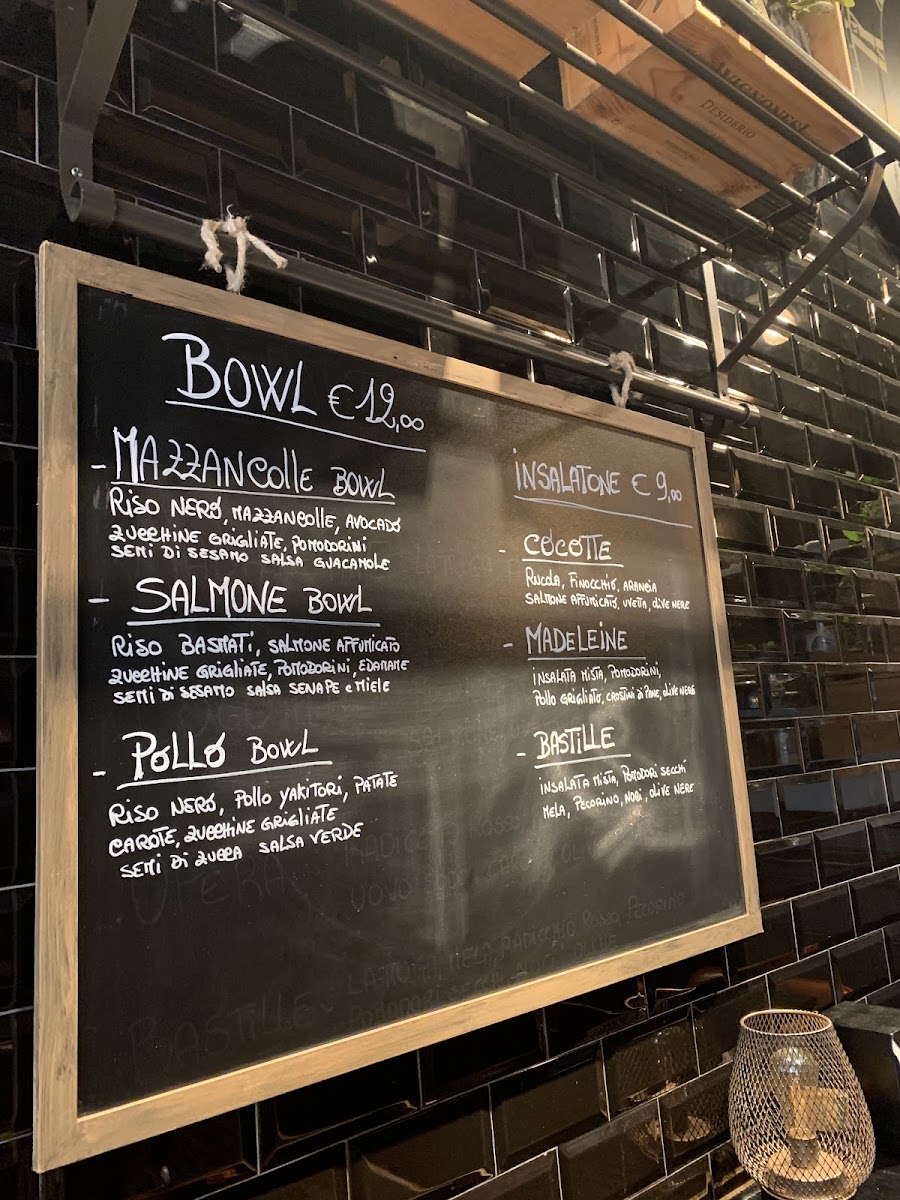 AVIGNONESI
DESIDERIO
BOWL €12,00
- MAZZANCOLLE BOWL
RISO NERO, MAZZANCOLLE, AVOCADO
ZUCCHINE GRIGLIATE, POMODORINI
SEMI DI SESAMO SALSA GUACAMOLE
- SALMONE BOWL
RISO BASMATI, SALMONE AFFUMICATO
ZUCCHINE GRIGLIATE, POMODORINI, EDAMAME
SEMI DI SESAMO SALSA SENAPE e MIELE
- POLLO BOWL
RISO NERO, POLLO YAKITORI, PATATE
CAROTE, ZUCCHINE GRIGLIATE
SEMI DI ZUCCA SALSA VERDE
INSALATONE € 9,00
- COCOTTE
RUCOLA, FINOCCHIO, ARANCIA
SALMONE AFFUMICATO, UVETTA, OLIVE NERE
- MADELEINE
INSALATA MISTA, POMODORINI,
POLLO GRIGLIATO, CROSTINI DI PANE, OLIVE NERE
- BASTILLE
INSALATA MISTA, POMODORI SECCHI
MELA, PECORINO, NOCI, OLIVE NERE
OPERA
RADICCHIO ROSSO
BASTILLE
LATTUGA, MELA, RADICCHIO ROSSO, PECORINO
POMODORI SECCHI